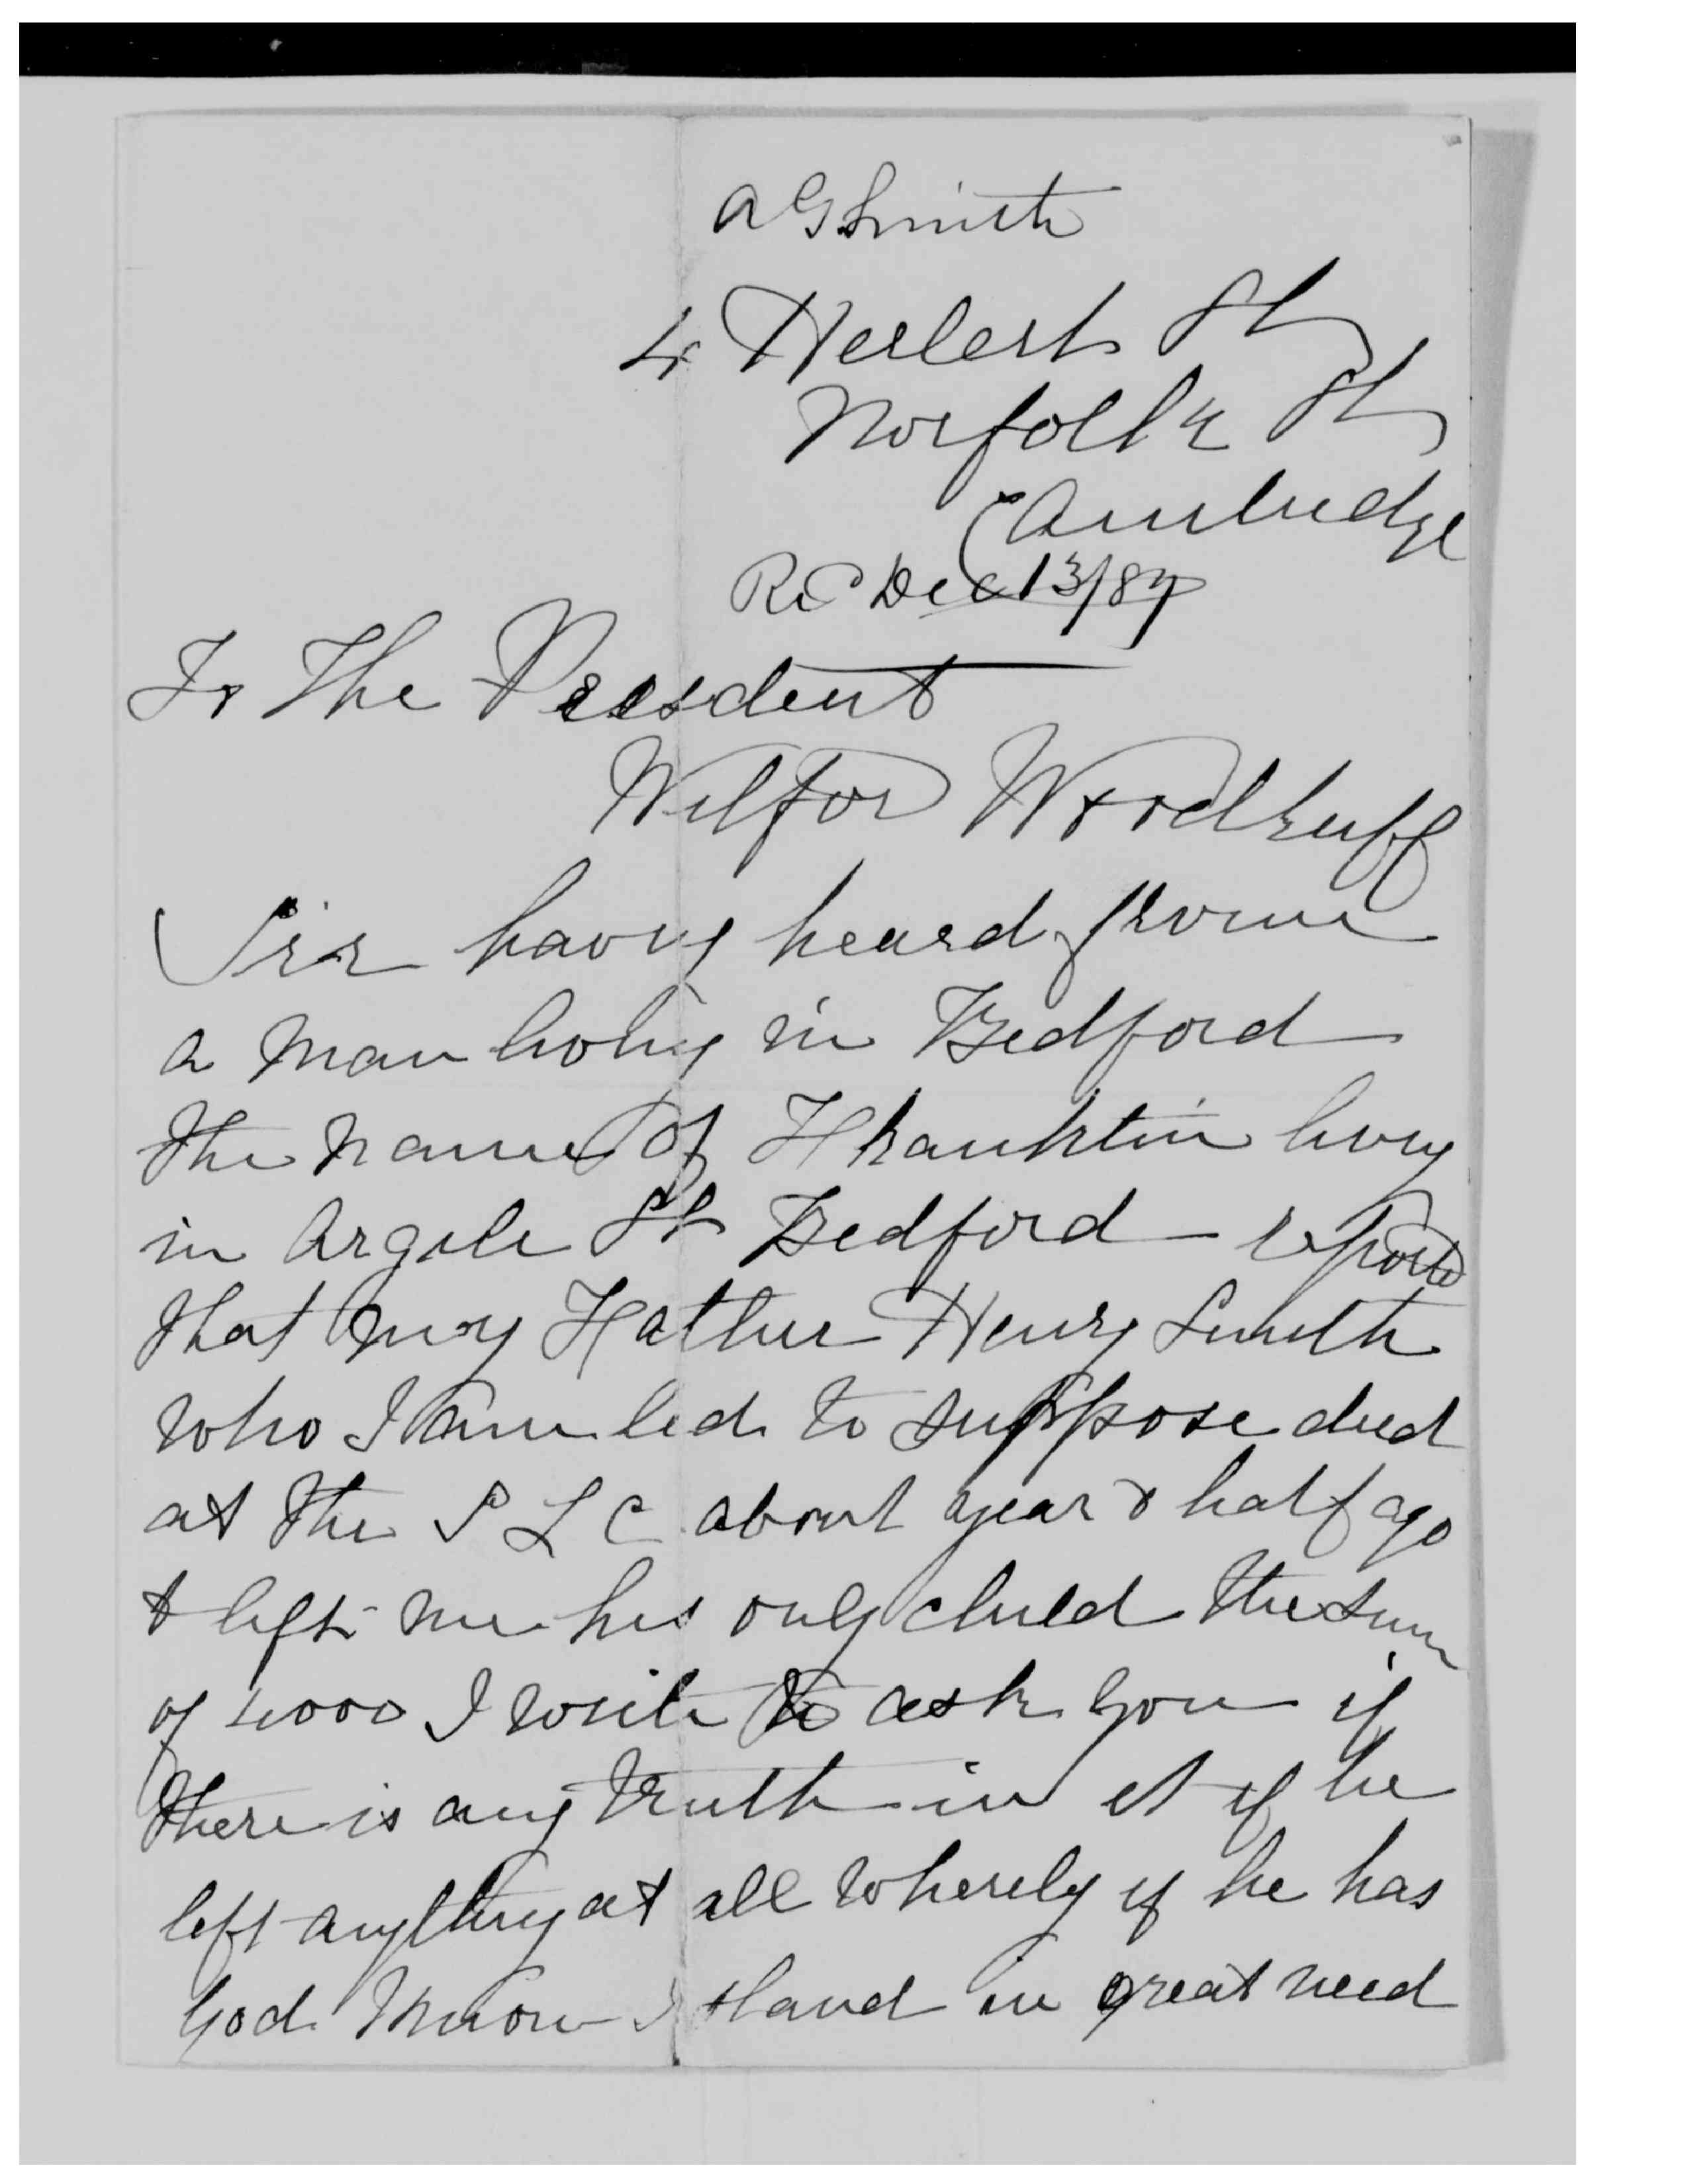 A G Smith
4 Herbert St
Norfolk St
Cambridge
Rec Dec 13/87
To The President
Wilfor Woodruff
Sir having heard from
a man living in Bedford
the name of Franklin living
in Argile St Bedford - reported
that my Father Henry Smith
who I am led to suppose died
at the S L C about year & half ago
& left me his only child the sum
of 4000 I write to ask you if
there is any truth in it if he
left anything at all whereby if he has
God know I stand in great need